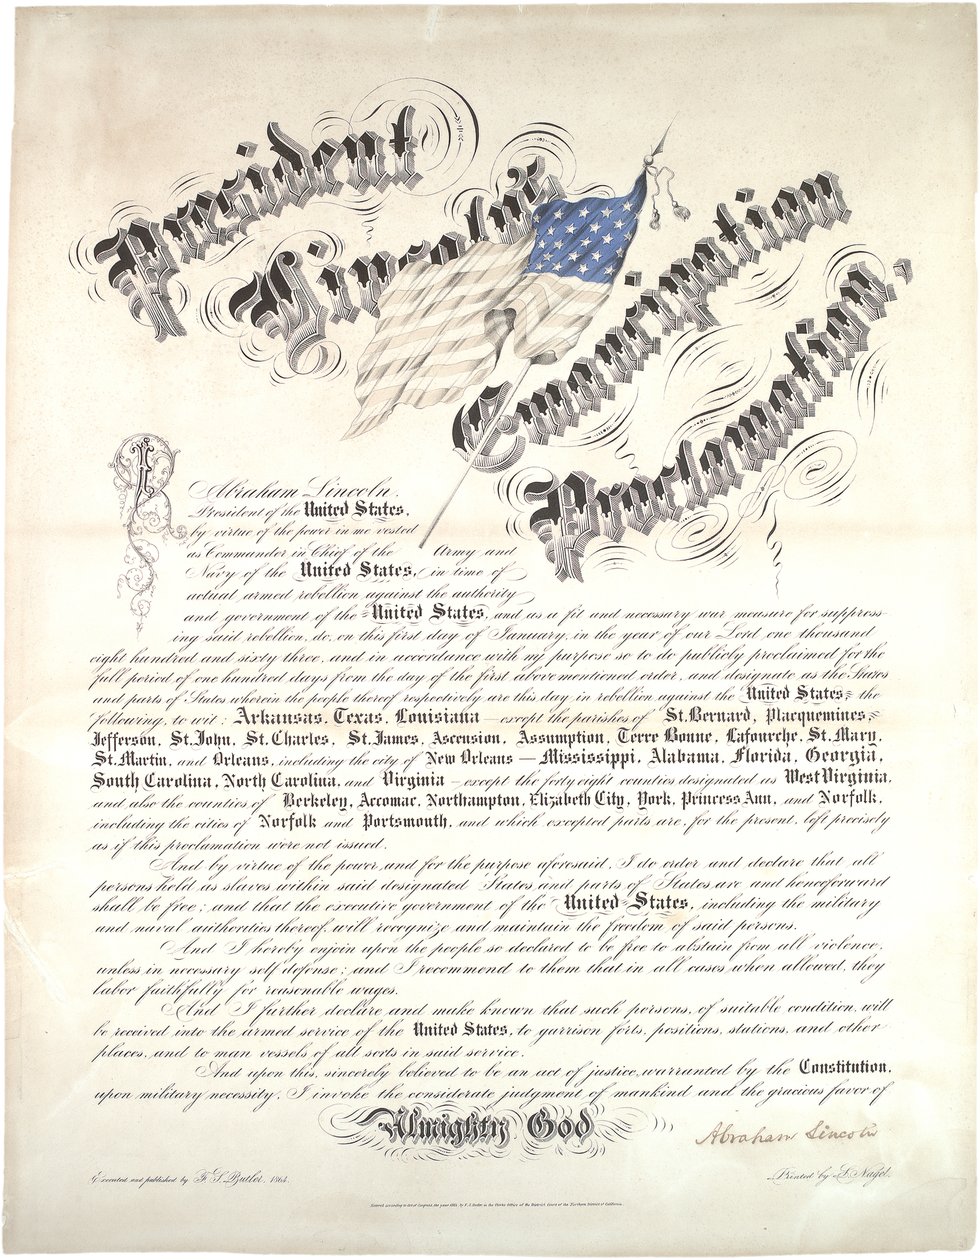 President
Lincoln's
Emancipation
Proclamation.
I
Abraham Lincoln.
President of the United States,
by virtue of the power in me vested
as Commander in Chief of the Army and
Navy of the United States, in time of
actual armed rebellion against the authority
and government of the United States, and as a fit and necessary war measure for suppress-
ing said rebellion, do, on this first day of January, in the year of our Lord one thousand
eight hundred and sixty three, and in accordance with my purpose so to do publicly proclaimed for the
full period of one hundred days from the day of the first above mentioned order, and designate as the States
and parts of States wherein the people thereof respectively are this day in rebellion against the United States, the
following, to wit: Arkansas, Texas, Louisiana – except the parishes of St. Bernard, Placquemines,
Jefferson, St. John, St. Charles, St. James, Ascension, Assumption, Terre Bonne, Lafourche, St. Mary,
St. Martin, and Orleans, including the city of New Orleans — Mississippi, Alabama, Florida, Georgia,
South Carolina, North Carolina, and Virginia – except the forty eight counties designated as West Virginia,
and also the counties of Berkeley, Accomac, Northampton, Elizabeth City, York, Princess Ann, and Norfolk,
including the cities of Norfolk and Portsmouth, and which excepted parts are, for the present, left precisely
as if this proclamation were not issued.
And by virtue of the power, and for the purpose aforesaid, I do order and declare that all
persons held as slaves within said designated States and parts of States, are and henceforward
shall be free; and that the executive government of the United States, including the military
and naval authorities thereof, will recognize and maintain the freedom of said persons.
And I hereby enjoin upon the people so declared to be free to abstain from all violence,
unless in necessary self defense; and I recommend to them that in all cases, when allowed, they
labor faithfully for reasonable wages.
And I further declare and make known that such persons, of suitable condition, will
be received into the armed service of the United States, to garrison forts, positions, stations, and other
places, and to man vessels of all sorts in said service.
And upon this, sincerely believed to be an act of justice, warranted by the Constitution,
upon military necessity, I invoke the considerate judgment of mankind and the gracious favor of
Almighty God
Abraham Lincoln
Executed and published by F. S. Butler, 1864.
Printed by L. Nagel.
Entered according to Act of Congress, the year 1864, by F. S. Butler, in the Clerks Office of the District Court of the Northern District of California.